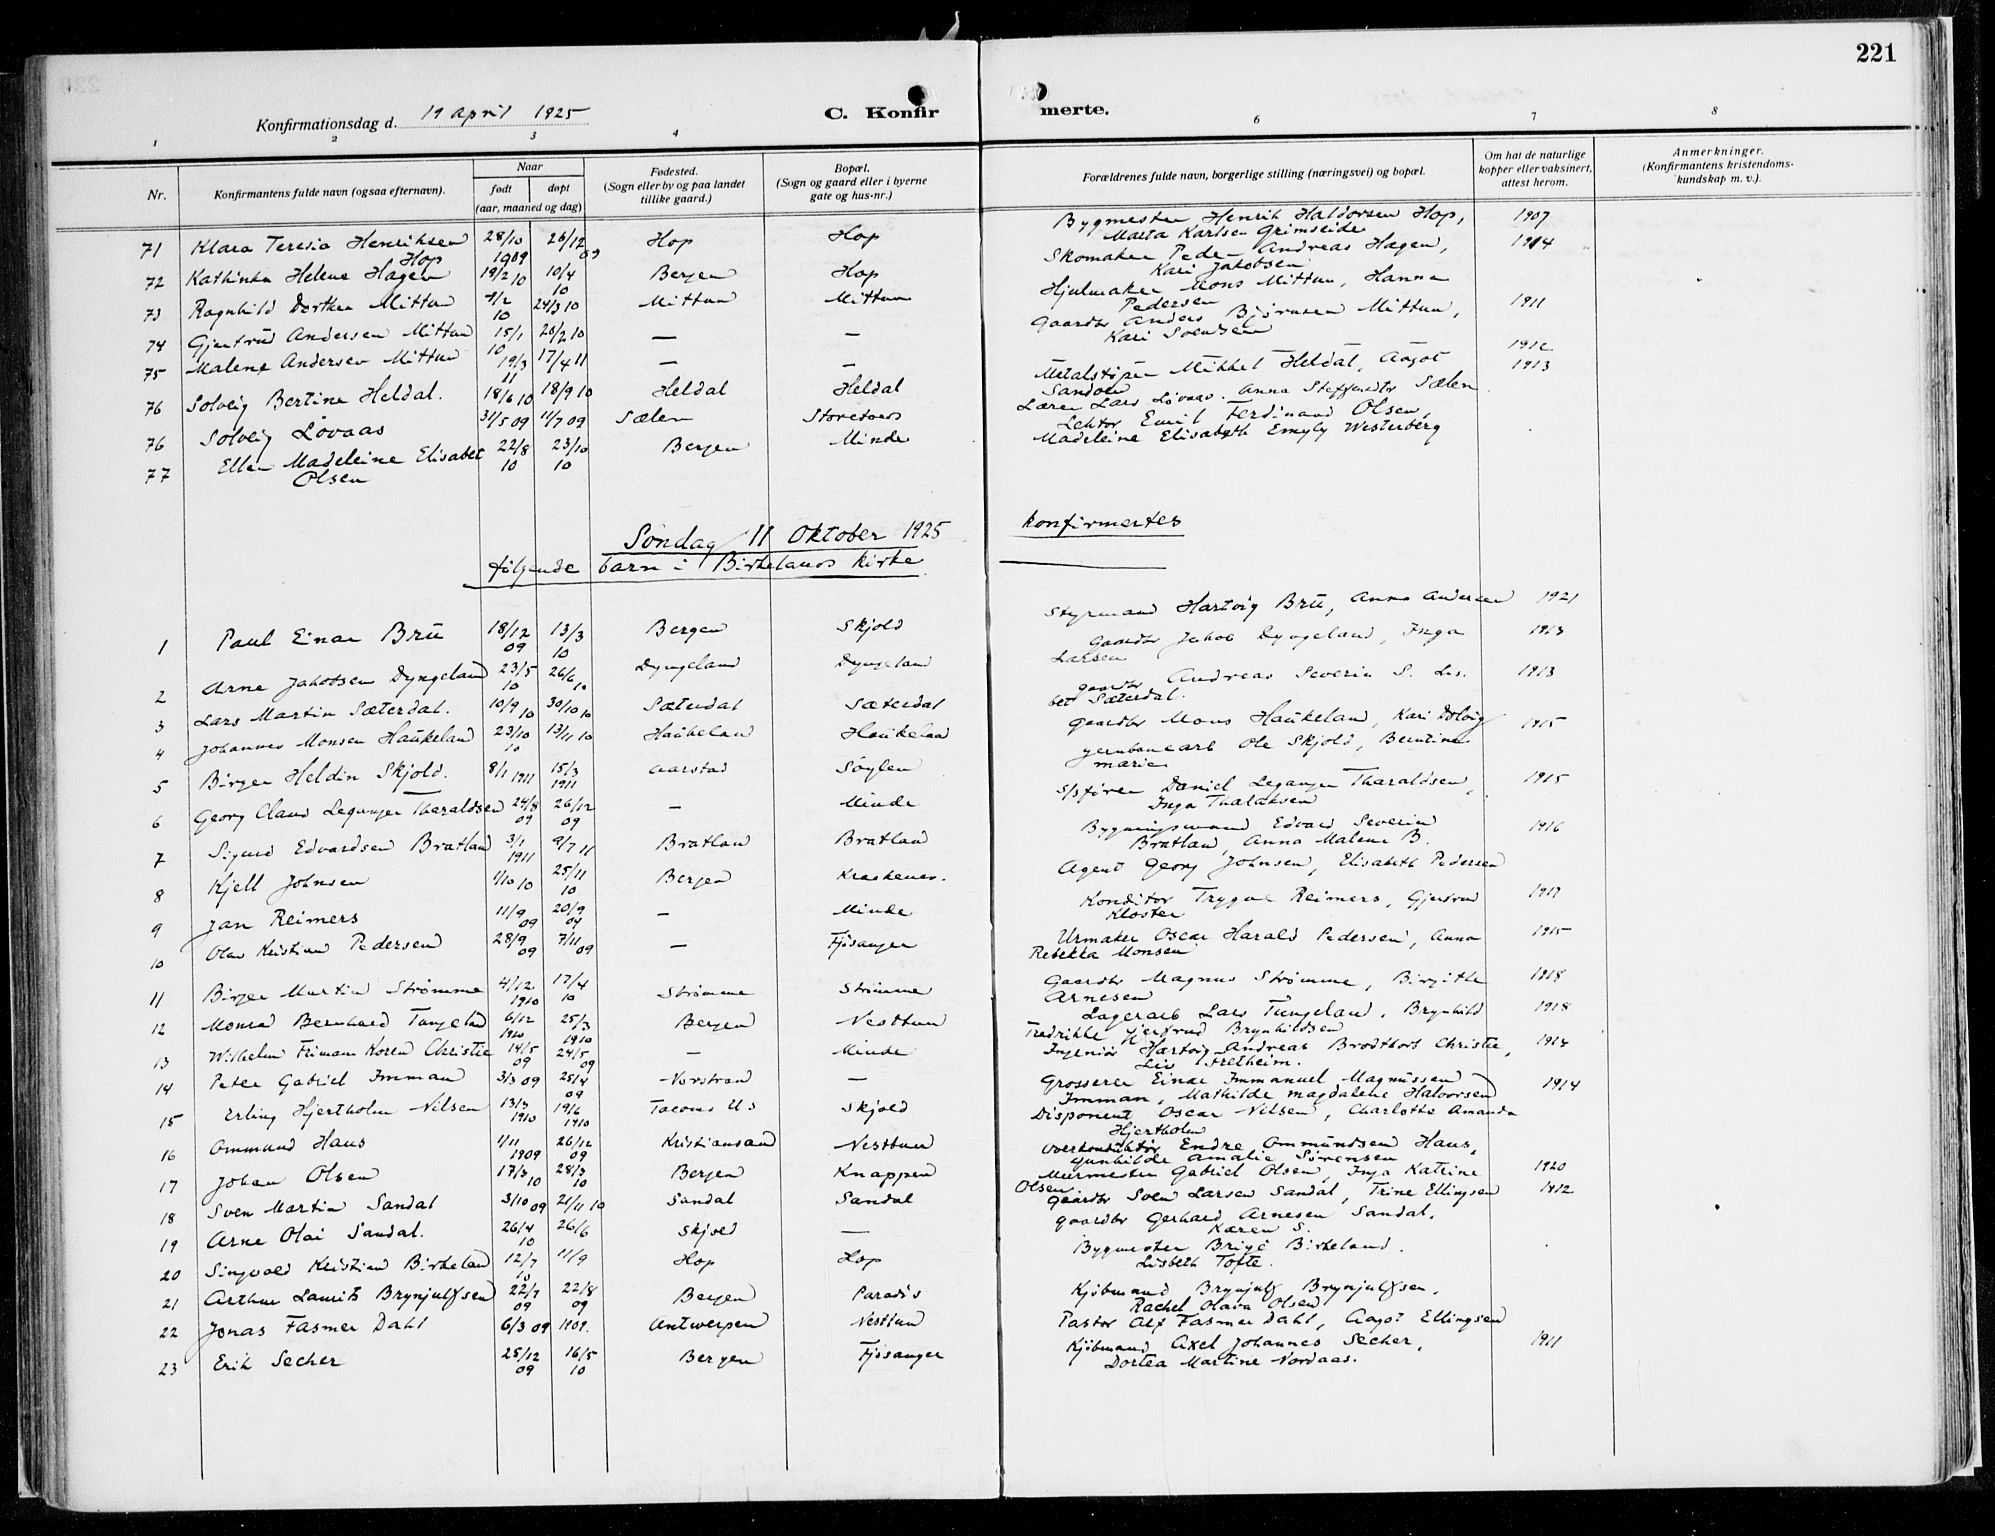 221
Konfirmationsdag d. 19 april 1925
C. Konfirmerte.
1 2 3 4 6 7 8
Nr.
Konfirmantens fulde navn (ogsaa efternavn).
Naar
født døpt
(aar, maaned og dag)
Fødested.
(Sogn eller by og paa landet
tillike gaard.)
Bopæl.
(Sogn og gaard eller i byerne
gate og hus-nr.)
Forældrenes fulde navn, borgerlige stilling (næringsvei) og bopæl.
Om hat de naturlige
kopper eller vaksinert,
attest herom.
Anmerkninger.
(Konfirmantens kristendoms-
kundskap m. v.).
71 Klara Teresia Henriksen Hop 28/10 1909 26/12 09 Hop Hop Bygmester Henrik Haldorsen Hop, Marta Karlsen Grimseide 1907
72 Kathinka Helene Hagen 19/2 10 10/4 10 Bergen Hop Skomaker Peder Andreas Hagen, Kari Jakobsen 1914
73 Ragnhild Dorthea Mittun 4/2 10 24/3 10 Mittun Mittun Hjulmaker Mons Mittun, Hanna Pedersen
74 Gjertrud Andersen Mittun 15/1 10 20/2 10 — — Gaardbr Anders Bjørnsen Mittun, Kari Svendsen 1911
75 Malene Andersen Mittun 19/3 11 17/4 11 — — 1912
76 Solveig Bertine Heldal. 18/6 10 18/9 10 Heldal Heldal Metalstøper Mikkel Heldal, Aagot Sandven 1913
76 Solveig Lovaas 31/5 09 11/7 09 Sælen Storetveit Lærer Lars Lovaas. Anna Steffensdtr Sælen
77 Ellen Madeleine Elisabet Olsen 22/8 10 23/10 10 Bergen Minde Lektor Emil Ferdinand Olsen, Madeleine Elisabeth Emyly Westerberg
Søndag 11 Oktober 1925 konfirmertes
følgende barn i Birkelands kirke
1 Paul Einar Bru 18/12 09 13/3 10 Bergen Skjold Styrmand Hartvig Bru, Anna Andersen 1921
2 Arne Jakobsen Dyngeland 23/5 10 26/6 10 Dyngeland Dyngeland Gaardbr Jakob Dyngeland, Inga Larsen 1913
3 Lars Martin Sæterdal. 10/9 10 30/10 10 Sæterdal Sæterdal gaardbr Andreas Severin S. Lisbet Sæterdal. 1913
4 Johannes Monsen Haukeland 23/10 10 13/11 10 Haukeland Haukeland gaardbr Mons Haukeland, Kari Dolvig 1915
5 Birger Heldin Skjold. 8/1 1911 15/3 1911 Aarstad Søylen jernbanearb Ole Skjold, Berntine marie
6 Georg Claus Leganger Tharaldsen 24/8 09 26/12 09 — Minde S/sfører Daniel Leganger Tharaldsen, Inga Tharaldsen 1915
7 Sigurd Edvardsen Bratland 3/1 1911 9/7 11 Bratland Bratland Bygningsmand Edvard Severin Bratland, Anna Malene B. 1916
8 Kjell Johnsen 1/10 10 25/11 10 Bergen Kraakenes. Agent Georg Johnsen, Elisabeth Pedersen
9 Jan Reimers 11/9 09 20/9 09 — Minde Konditor Trygve Reimers, Gjertrud Kloster 1917
10 Olav Kristian Pedersen 28/9 09 7/11 09 — Fjøsanger Urmaker Oscar Harald Pedersen, Anna Rebekka Monsen 1915
11 Birger Martin Strømme 4/12 1910 17/4 10 Strømme Strømme Gaardbr Magnus Strømme, Birgithe Arnesen 1918
12 Monrad Bernhard Tungeland 6/12 1910 25/3 1910 Bergen Nesttun Lagerarb Lars Tungeland, Brynhild Fredrikke Hjertrud Brynhildsen 1918
13 Wilhelm Friman Koren Christie 14/5 09 24/5 09 — Minde Ingeniør Hartvig Andreas Brodtkorb Christie, Liv Fretheim. 1914
14 Peter Gabriel Imman 3/3 09 25/4 09 Norstrand — Grosserer Einar Immanuel Magnussen Imman, Mathilde magdalene Halvorsen 1914
15 Erling Hjertholm Nilsen 13/3 1910 19/6 1910 Tacoma US Skjold Disponent Oscar Nilsen, Charlotte Amanda Hjertholm
16 Ommund Haus 1/11 1909 26/12 09 Kristiansand Nesttun Overkonduktør Endre Ommundsen Haus, Gunhilde Amalie Sørensen
17 Johan Olsen 17/3 10 28/3 10 Bergen Knappen Murmester Gabriel Olsen, Inga Katrine Olsen 1920
18 Sven Martin Sandal 3/10 09 21/11 10 Sandal Sandal Gaardbr Sven Larsen Sandal, Trine Ellingsen 1912
19 Arne Olai Sandal. 26/4 10 26/6 Skjold — gaardbr Gerhard Arnesen Sandal, Karen S.
20 Singvald Kristian Birkeland 12/7 10 11/9 Hop Hop Bygmester Brigt Birkeland. Lisbeth Tofte.
21 Arthur Laurits Brynjulfsen 22/7 09 22/8 09 Bergen Paradis Kjøbmand Brynjulf Brynjulfsen, Rachel Olava Olsen
22 Jonas Fasmer Dahl 6/3 09 1909. Antwerpen Nesttun Pastor Alf Fasmer Dahl, Aagot Ellingsen
23 Erik Secher 25/12 09 16/5 10 Bergen Fjøsanger Kjøbmand Axel Johannes Secher, Dortea Martine Nordaas. 1911